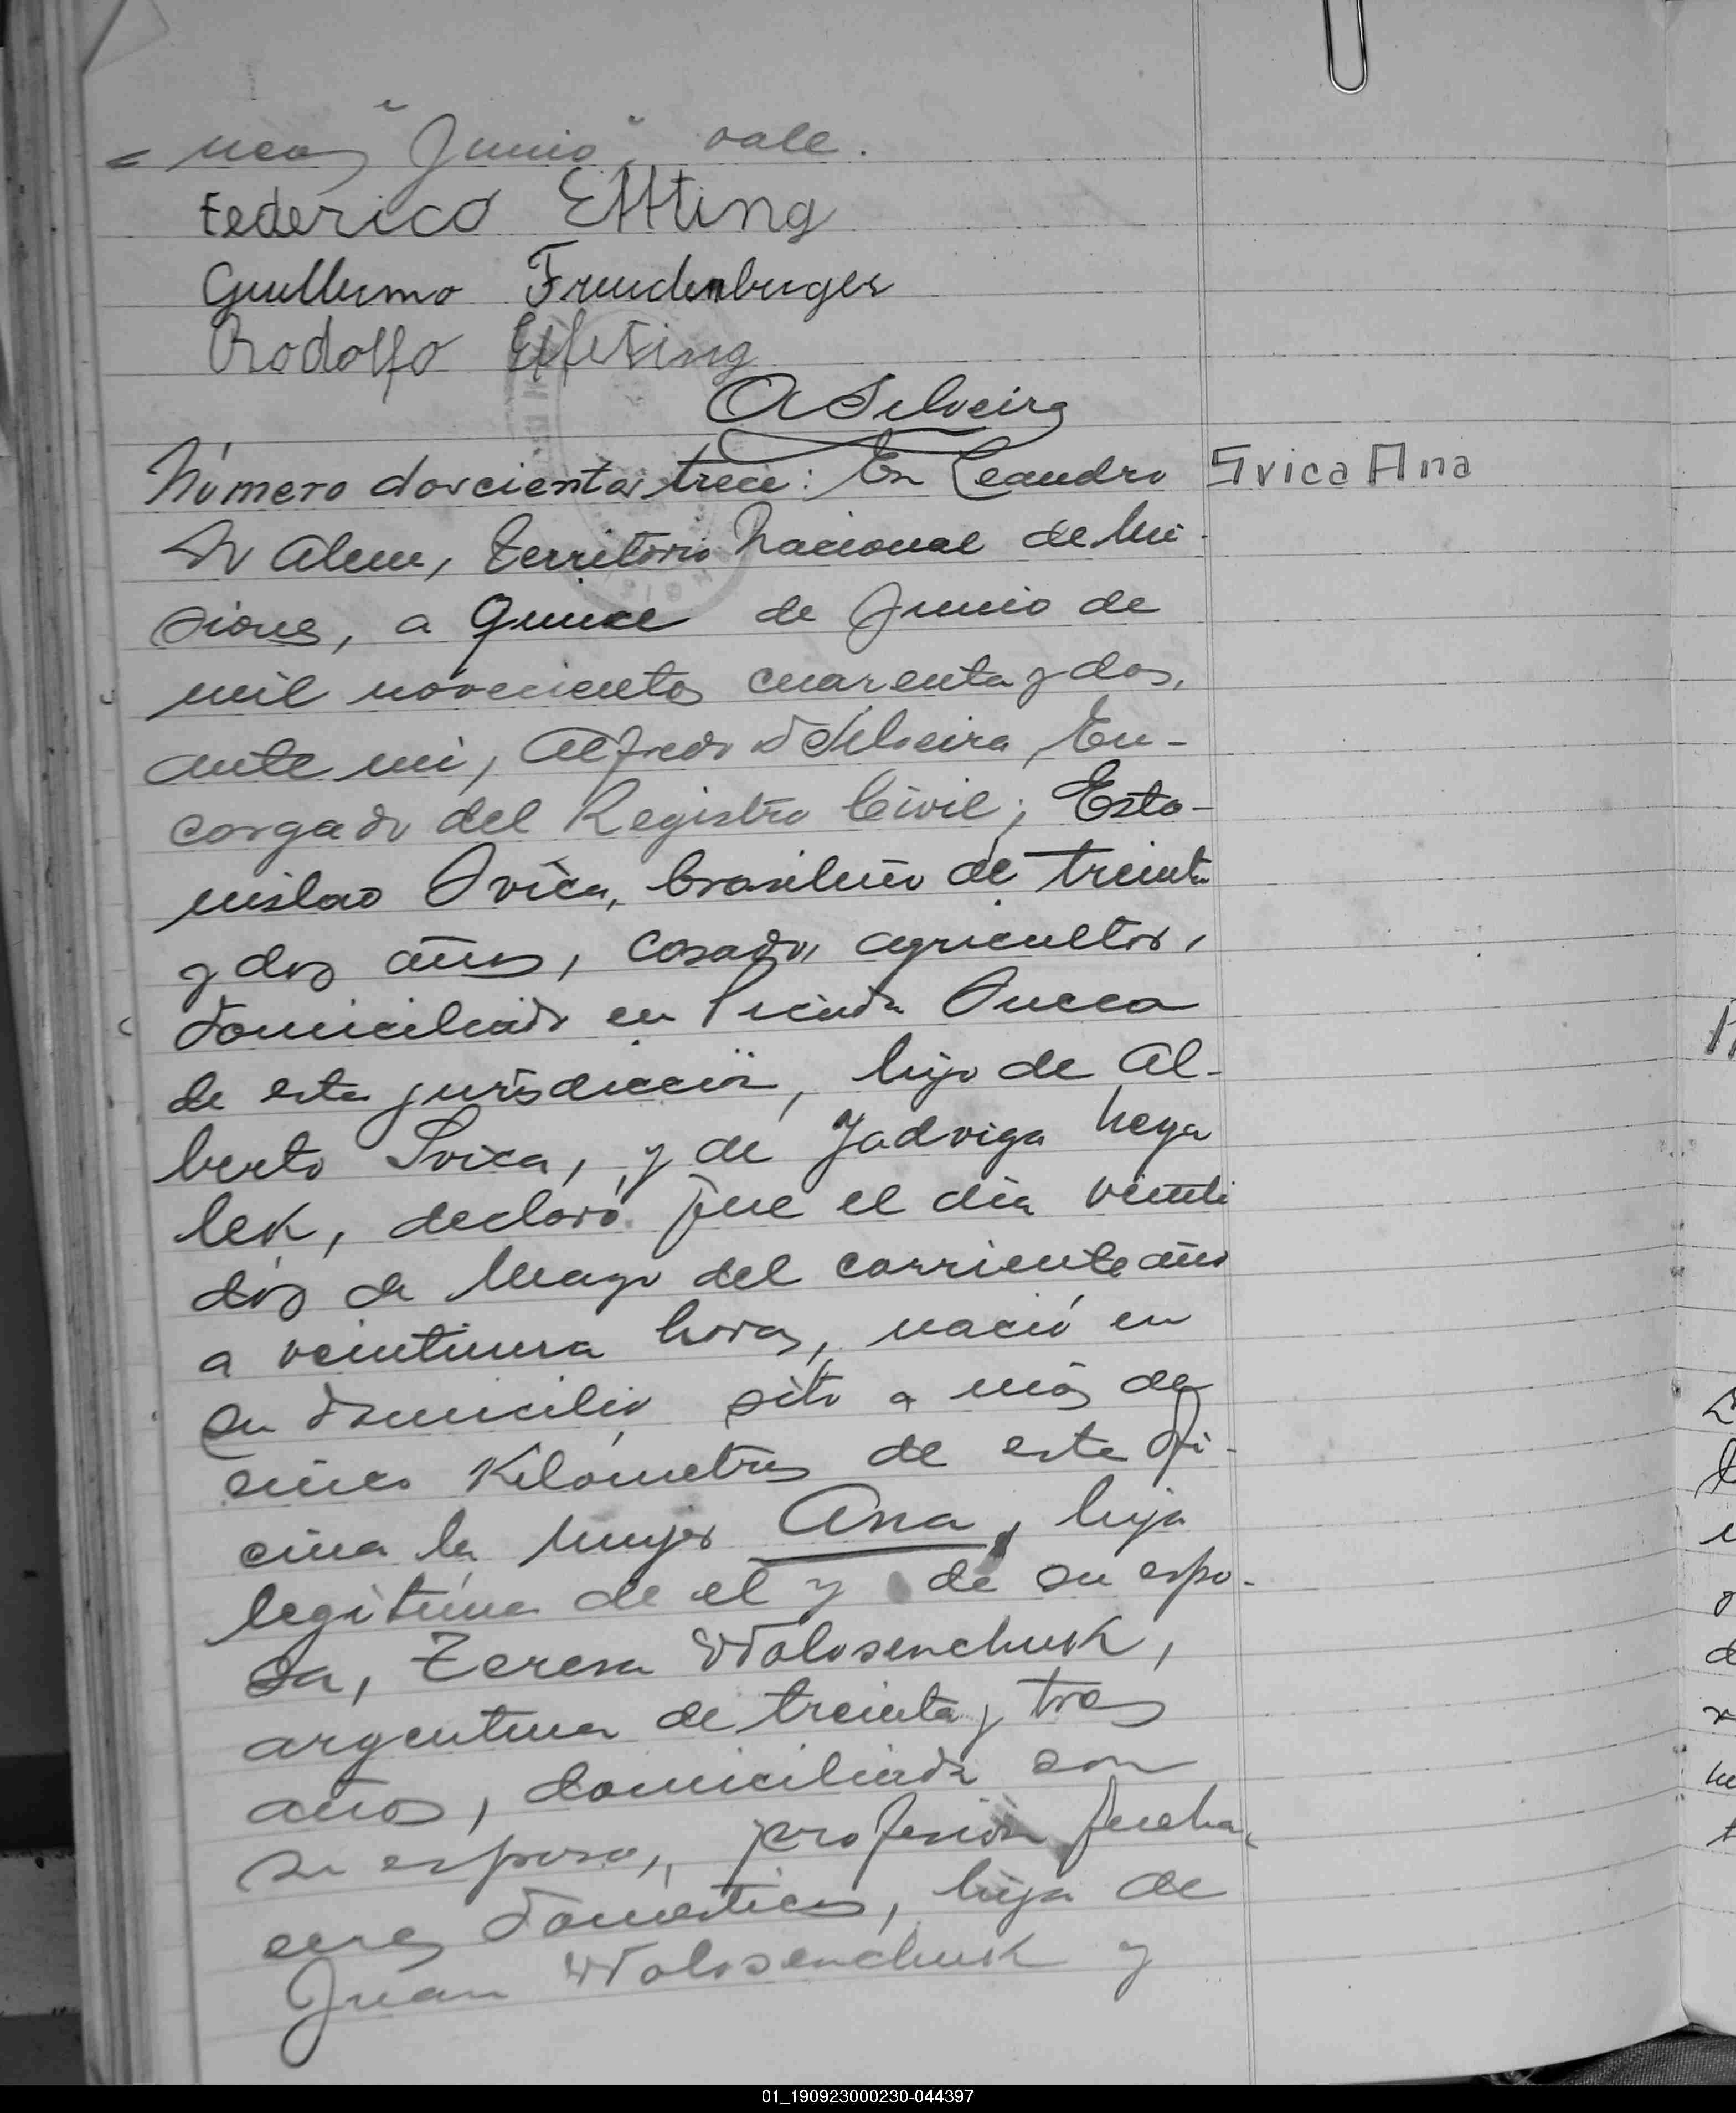 nea "Junio", vale.
Federico Effting
Guillermo Freudenbuger
Rodolfo Effting
A Silveira
Número doscientos trece: En Leandro
Svica Ana
N Alem, Territorio Nacional de Mi-
siones, a Quince de Junio de
mil novecientos cuarenta y dos,
ante mi, Alfredo D Silveira, En-
cargado del Registro Civil; Esta-
nislao Svica, brasileño de treinta
y dos años, casado, agricultor,
domiciliado en Picada
de esta jurisdicción, hijo de Al-
berto Svica, y de Jadviga Nega
lek, declaró que el día veinti
dós de Mayo del corriente año
a veintiuna horas, nació en
su domicilio sito a más de
cinco Kilómetros de esta Ofi-
cina la mujer Ana, hija
legítima de el y de su espo-
sa, Teresa Wolosenchuk,
argentina de treinta y tres
años, domiciliada con
su esposo, profesión queha-
ceres domésticos, hija de
Juan Wolosenchuk y
01_190923000230-044397